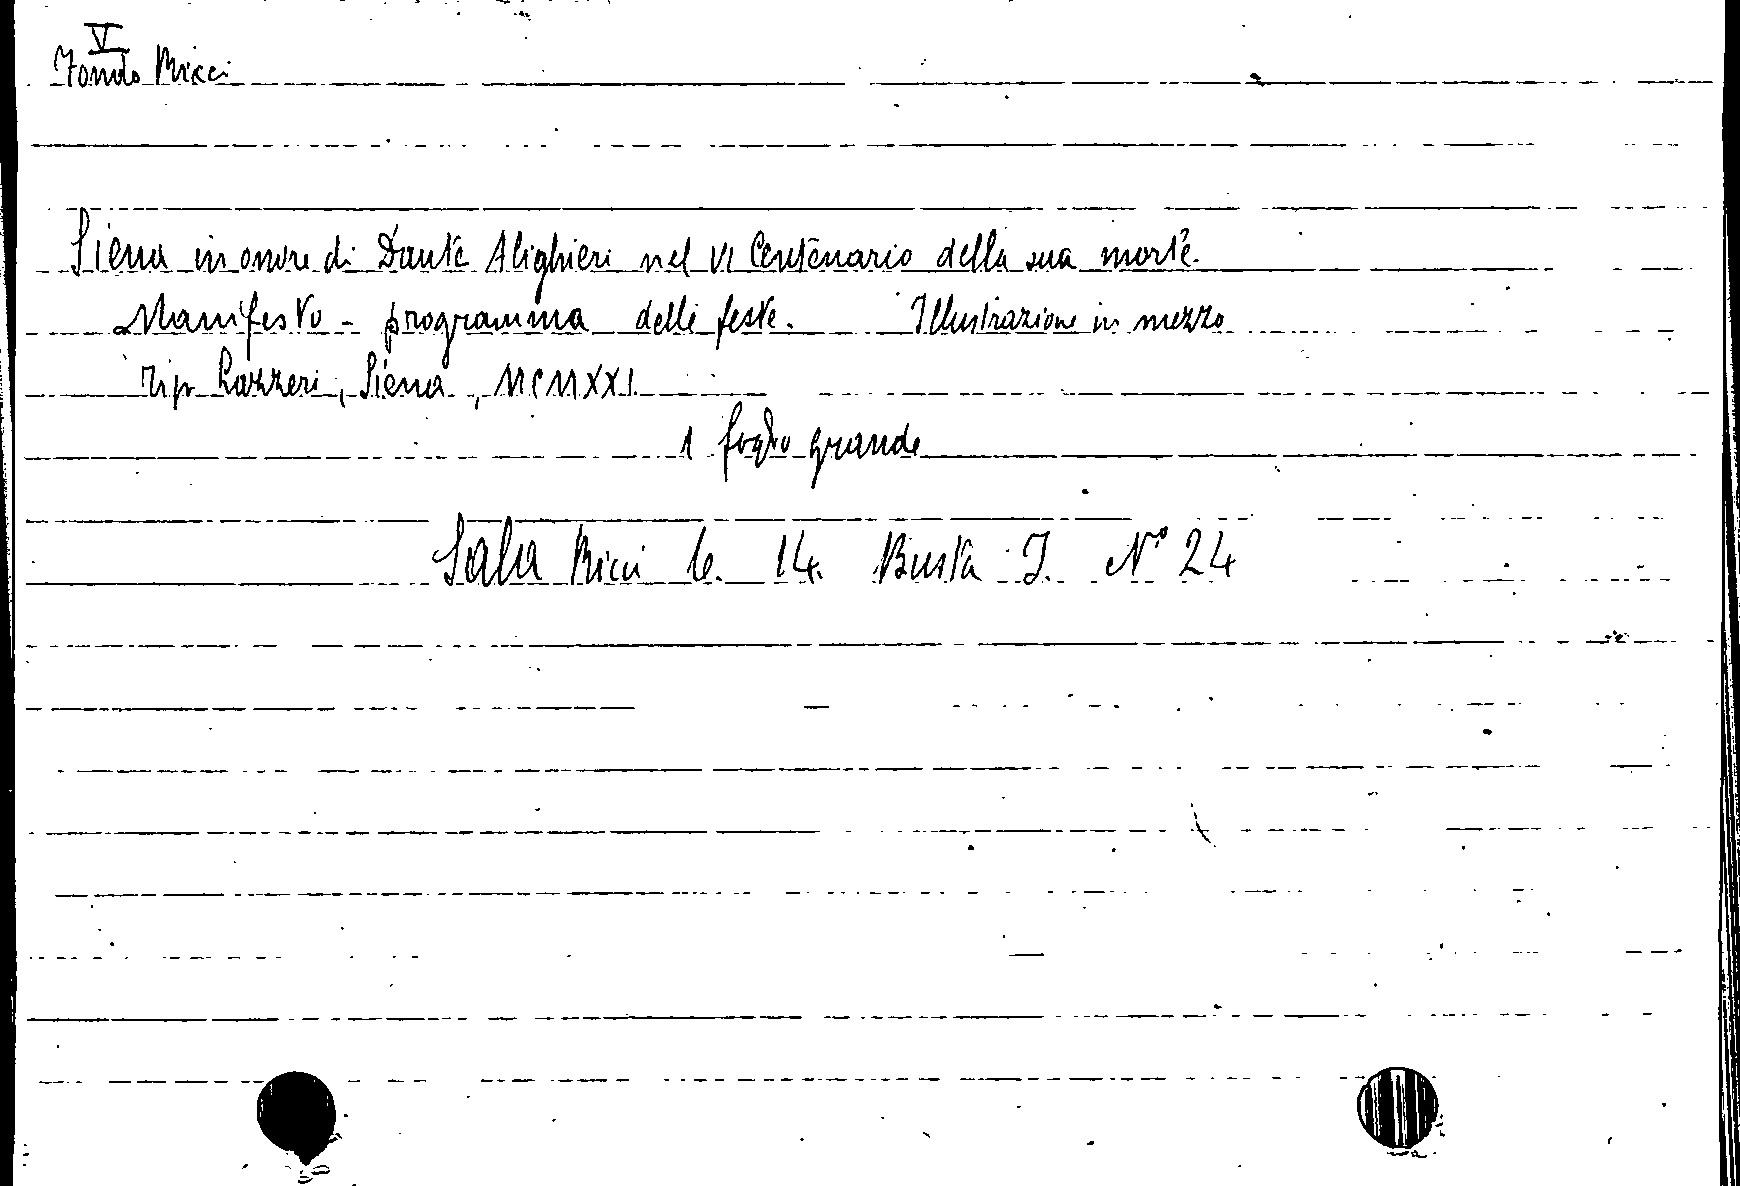 V
Fondo Ricci
Siena in onore di Dante Alighieri nel VI Centenario della sua morte.
Manifesto - programma delle feste. Illustrazione in mezzo
Tip. Lazzeri, Siena, MCMXXI.
1 foglio grande
Sala Ricci 6. 14. Busta I. N° 24